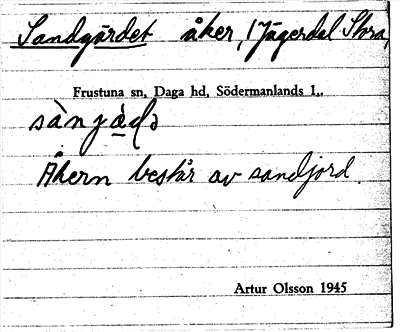 Sandgärdet åker, (Jägerdal Stora,
Frustuna sn, Daga hd, Södermanlands l.,
Åkern består av sandjord.
Artur Olsson 1945